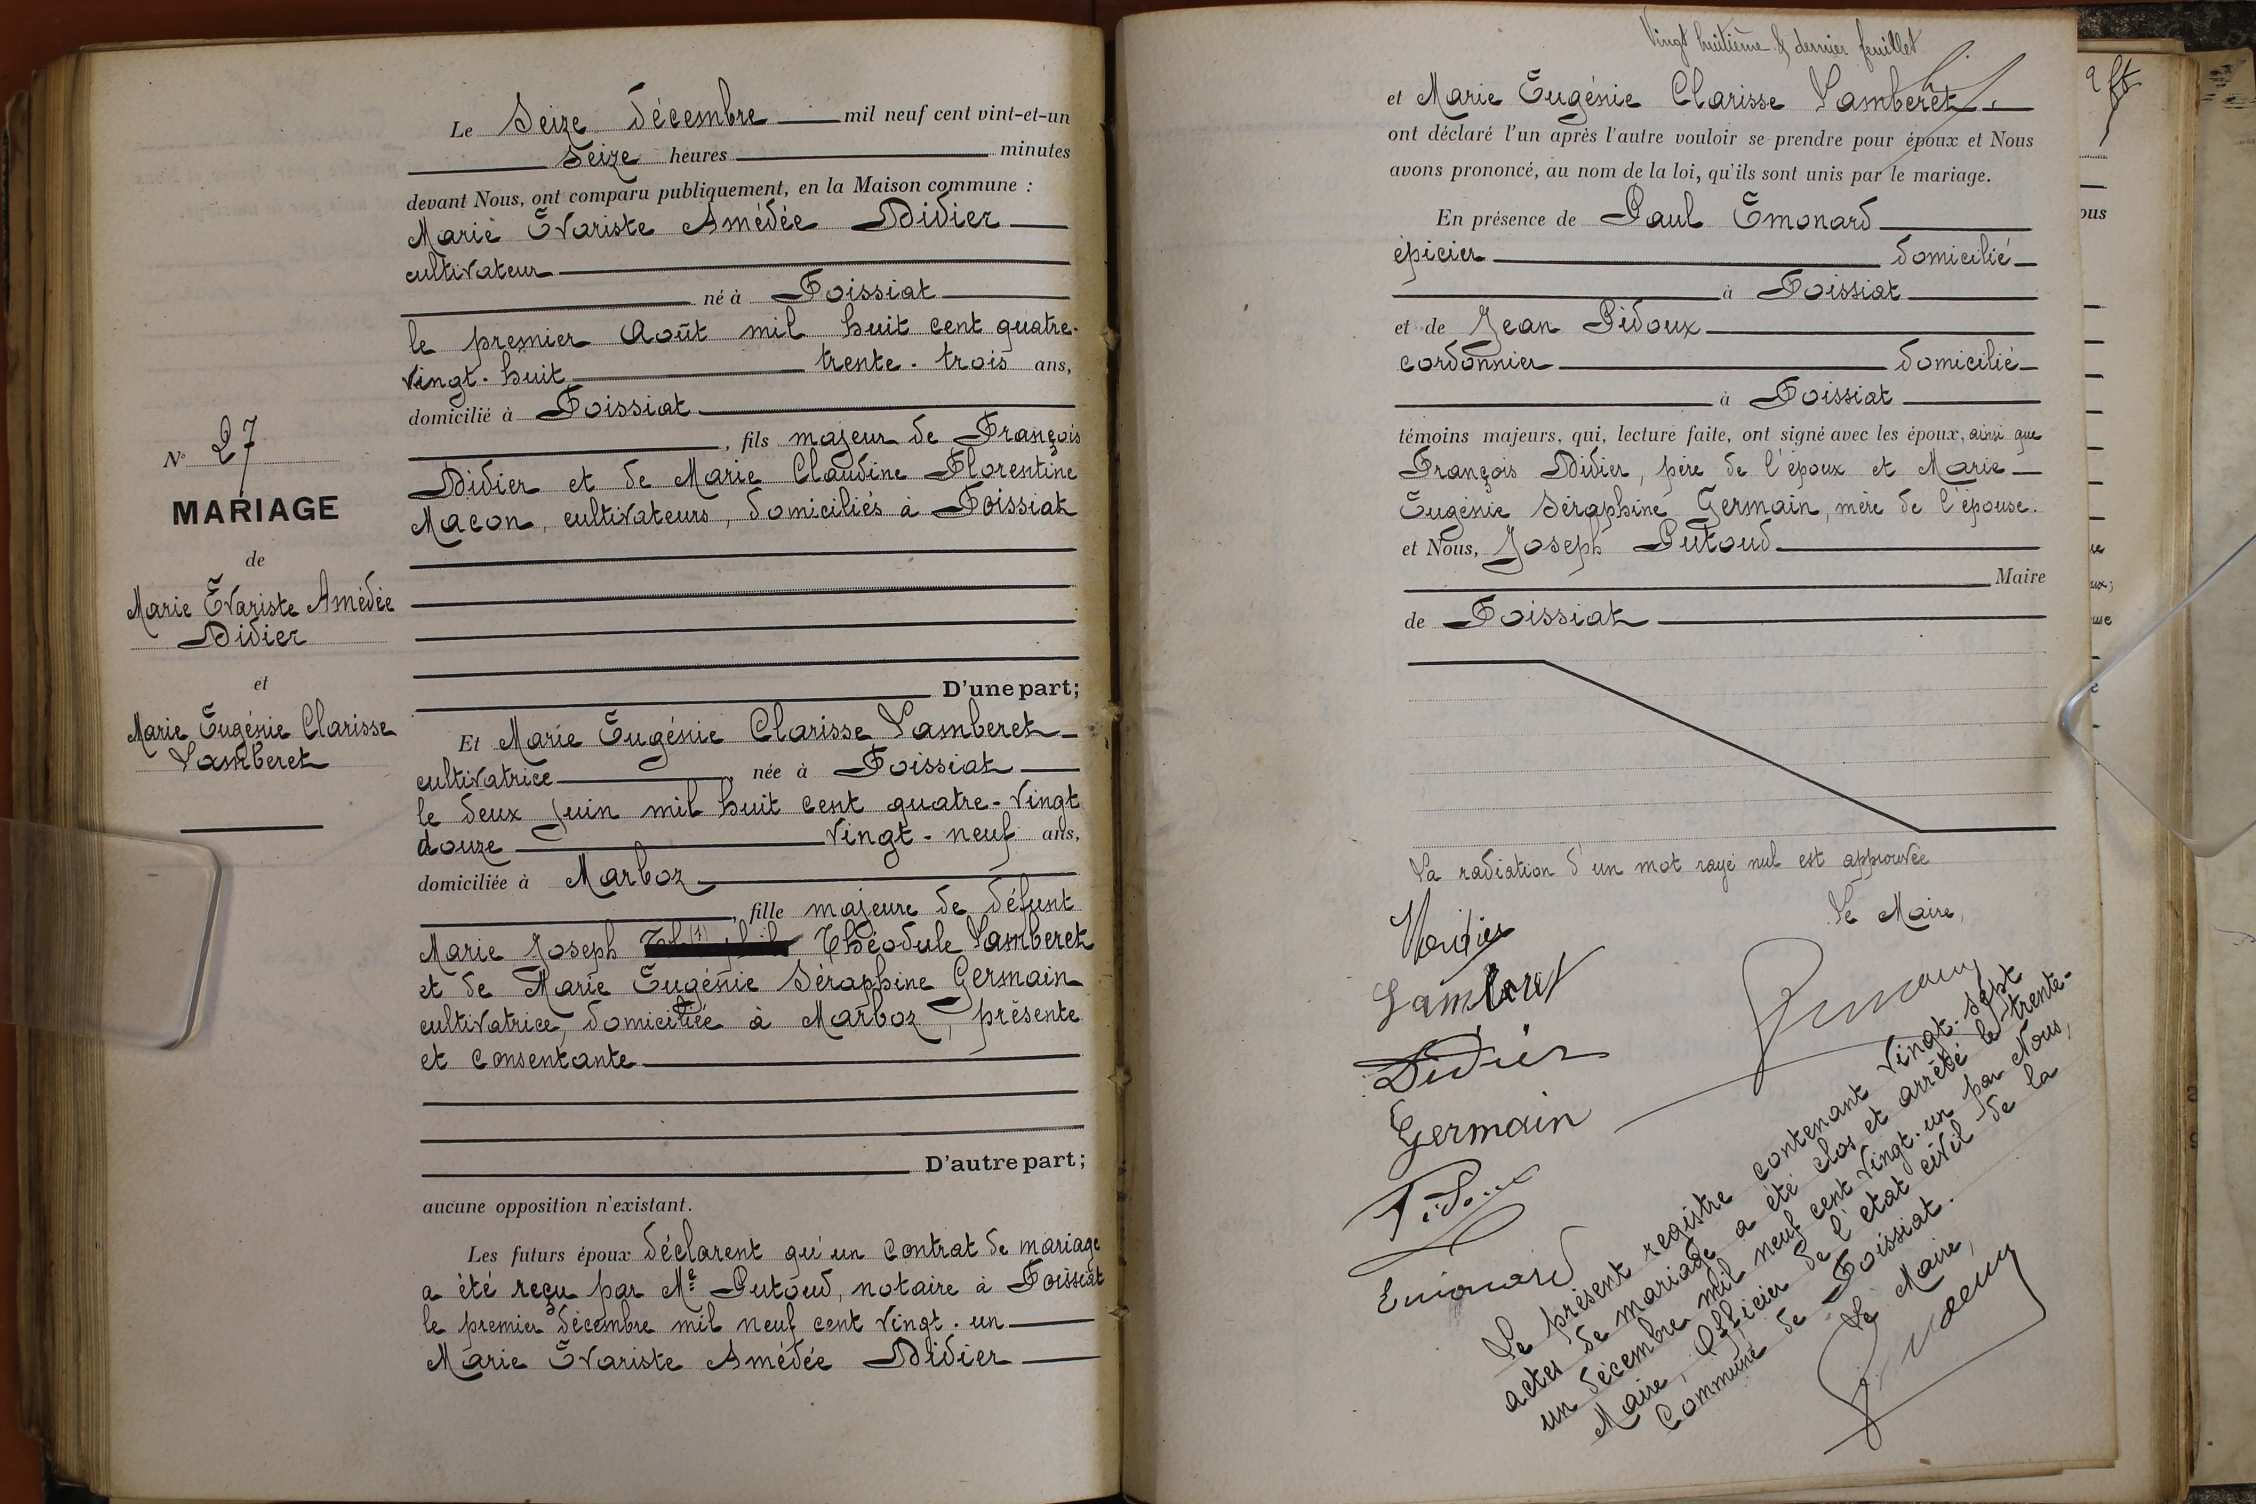 N° 27
MARIAGE
de
Marie Evariste Amédée
Didier
et
Marie Eugénie Clarisse
Lamberet
Le Seize décembre mil neuf cent vint-et-un
Seize heures minutes
devant Nous, ont comparu publiquement, en la Maison commune :
Marie Evariste Amédée Didier
cultivateur
né à Foissiat
le premier Août mil huit cent quatre-
vingt-huit trente-trois ans,
domicilié à Foissiat
, fils majeur de François
Didier et de Marie Claudine Florentine
Macon, cultivateurs, domiciliés à Foissiat
D'une part;
Et Marie Eugénie Clarisse Lamberet
cultivatrice, née à Foissiat
le deux Juin mil huit cent quatre-vingt
douze vingt-neuf ans,
domiciliée à Marboz
, fille majeure de défunt
Marie Joseph (1) Théodule Lamberet
et de Marie Eugénie Séraphine Germain
cultivatrice, domiciliée à Marboz, présente
et consentante
D'autre part;
aucune opposition n'existant.
Les futurs époux déclarent qu'un contrat de mariage
a été reçu par Me Putoud, notaire à Foissiat
le premier décembre mil neuf cent vingt-un
Marie Evariste Amédée Didier
Vingt huitième & dernier feuillet
et Marie Eugénie Clarisse Lamberet
ont déclaré l'un après l'autre vouloir se prendre pour époux et Nous
avons prononcé, au nom de la loi, qu'ils sont unis par le mariage.
En présence de Paul Emonard
épicier domicilié
à Foissiat
et de Jean Pidoux
cordonnier domicilié
à Foissiat
témoins majeurs, qui, lecture faite, ont signé avec les époux, ainsi que
François Didier, père de l'époux et Marie
Eugénie Séraphine Germain, mère de l'épouse.
et Nous, Joseph Putoud
Maire
de Foissiat
La radiation d'un mot rayé nul est approuvée
Le Maire,
Lamberet
Didier
Germain
Pidoux
Emonard
Le présent registre contenant vingt-sept
actes de mariage a été clos et arrêté le trente-
un décembre mil neuf cent vingt-un par Nous,
Maire, Officier de l'état civil de la
Commune de Foissiat.
Le Maire,